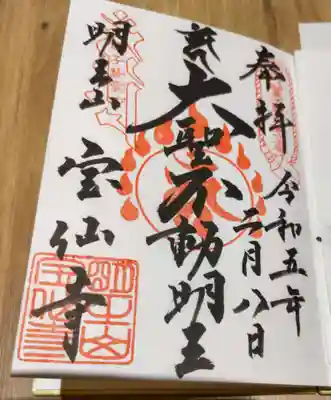 奉拝
令和五年
二月八日
大聖不動明王
明王山
宝仙寺